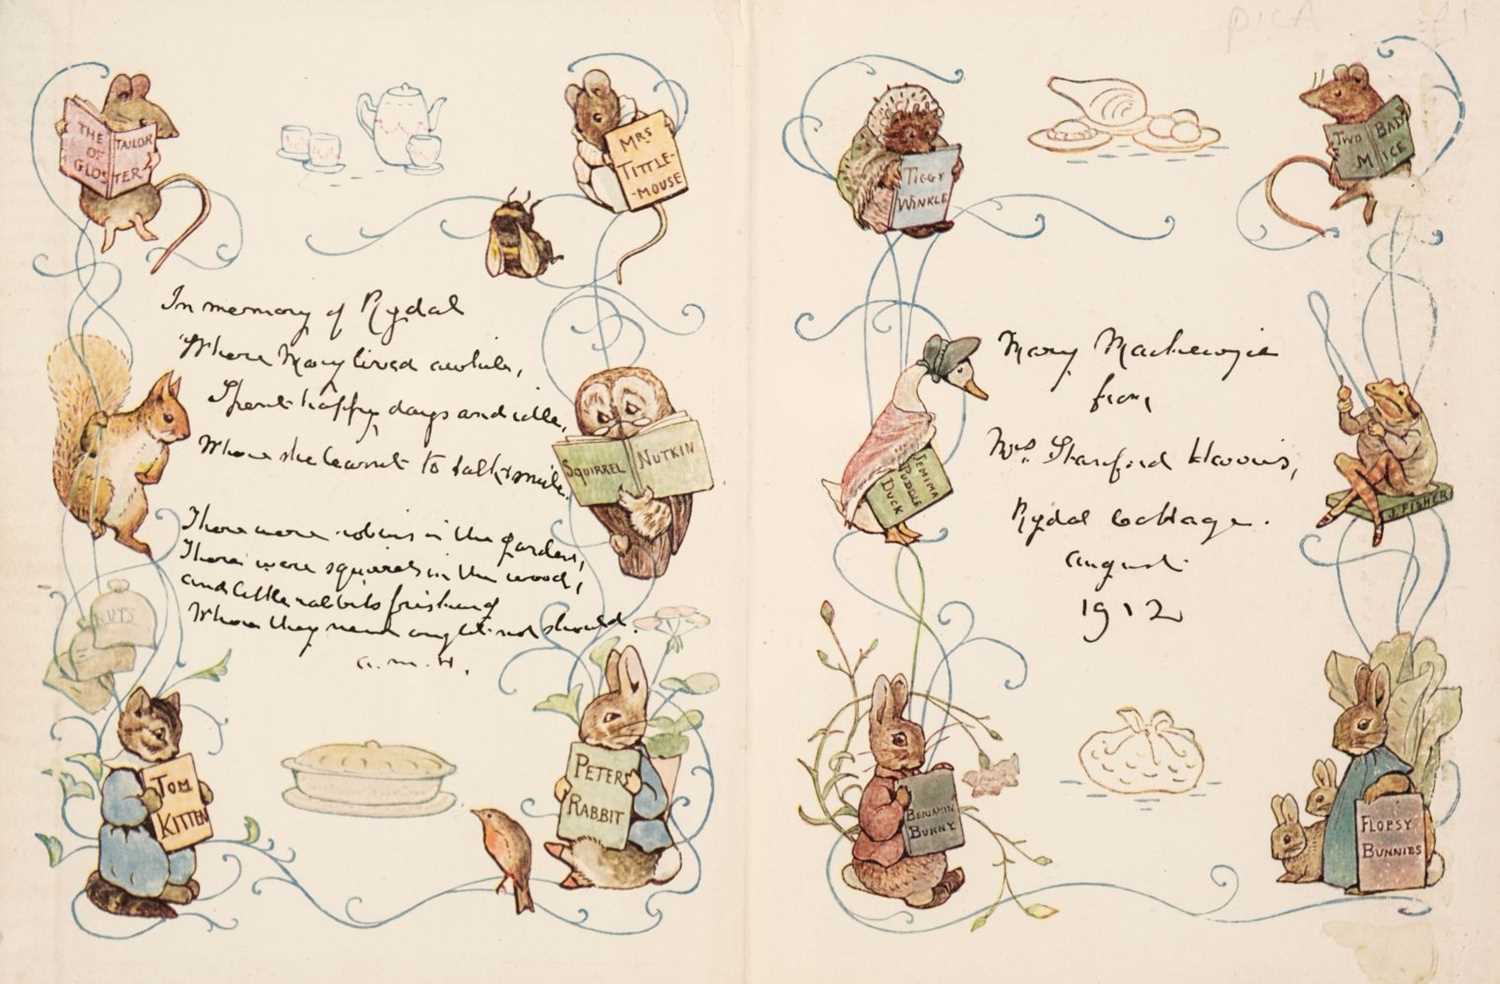 THE TAILOR
OF
GLOSTER
MRS
TITTLE-
-MOUSE
In memory of Rydal
Where Mary lived awhile,
Spent happy days and idle,
Where she learnt to talk & smile.
SQUIRREL NUTKIN
There were robins in the garden,
There were squirrels in the wood,
and little rabbits frisking
Where they never ought nor should.
a.m.H.
NUTS
TOM
KITTEN
PETER
RABBIT
PICA
TIGGY
WINKLE
TWO BAD
MICE
Mary Mackenzie
from
Mrs. Stanford Harris,
Rydal Cottage.
august
1912
JEMIMA
PUDDLE
DUCK
J. FISHER
BENJAMIN
BUNNY
FLOPSY
BUNNIES